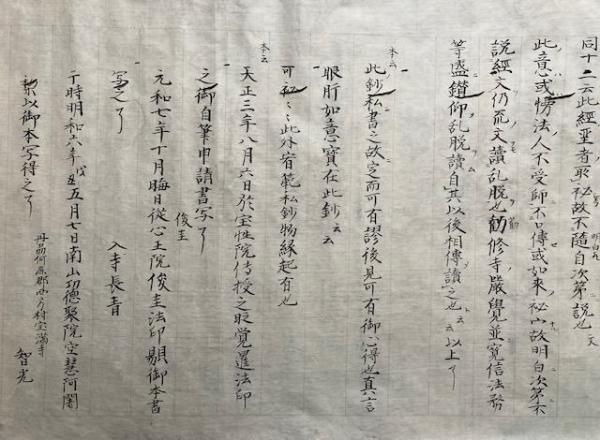 同十二云此経亜者聖秘故不隨自次第説也文
此意或愽法人不受師不口傳或如来秘山故明白次第不
説経文仍荒文讀乱脱也勧修寺嚴覺並寛信法務
等盛鑽仰乱脱讀自其以後相傳讀之也云云以上了
本云
此鈔私書之故定而可有謬後見可有御心得也真言
眼肝如意寳在此鈔云云
可秘〻〻此外省範私鈔物縁起有也
本云
天正三年八月六日於宝性院傳授之砌覺暹法印
之御自筆申請書写了 俊圭
元和七年十月晦日従心王院俊圭法印顕御本書
写之了 入寺長音
于時明和六年五月七日南山功德聚院空慧阿闍
梨以御本写得之了
丹品何鹿郡西乃村宝満寺 智光